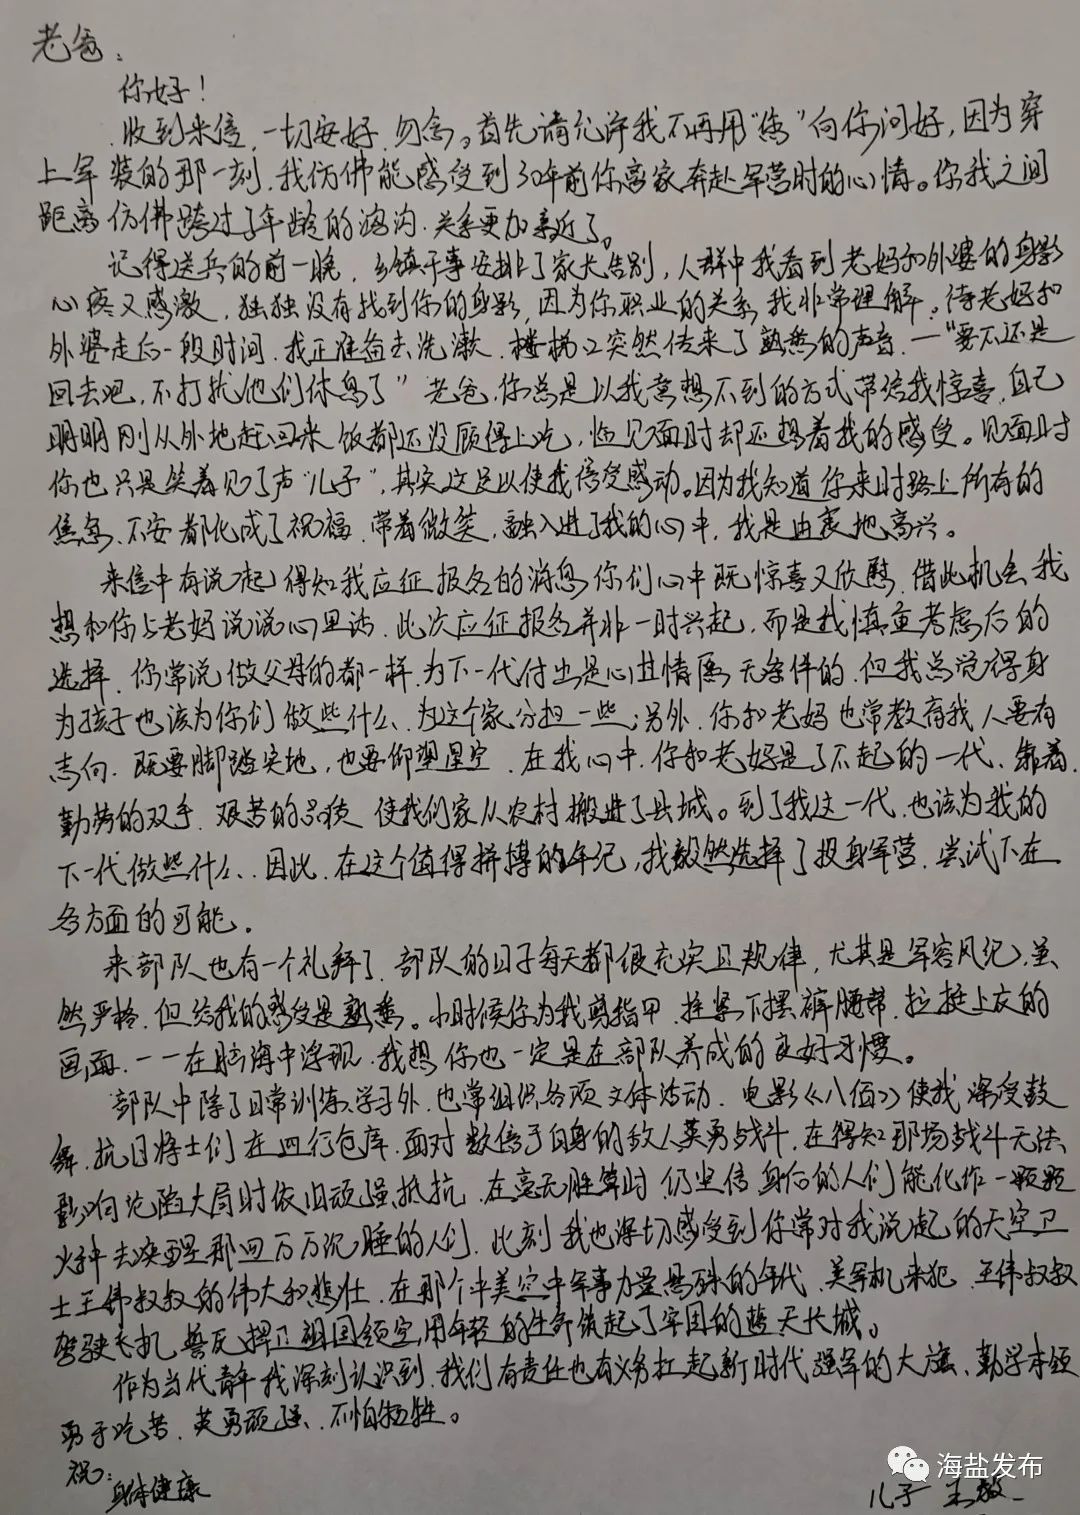 老爸:
你好!
收到来信,一切安好,勿念。首先请允许我不再用“您”向你问好,因为穿
上军装的那一刻,我仿佛能感受到30年前你离家奔赴军营时的心情。你我之间
距离仿佛跨过了年龄的鸿沟,关系更加亲近了。
记得送兵的前一晚,乡镇干事安排了家人告别,人群中我看到老妈和外婆的身影
心疼又感激,独独没有找到你的身影,因为你职业的关系,我非常理解。待老妈和
外婆走后一段时间,我正准备去洗漱,楼梯口突然传来了熟悉的声音,一“要不还是
回去吧,不打扰他们休息了”老爸,你总是以我意想不到的方式带给我惊喜,自己
明明刚从外地赶回来饭都还没顾得上吃,临见面时却还想着我的感受。见面时
你也只是笑着见了声“儿子”,其实这足以使我倍受感动。因为我知道你来时路上所有的
焦急、不安都化成了祝福,带着微笑,融入进了我的心中,我是由衷地高兴。
来信中有说起得知我应征报名的消息你们心中既惊喜又欣慰,借此机会我
想和你与老妈说说心里话,此次应征报名并非一时兴起,而是我慎重考虑后的
选择,你常说做父母的都一样,为下一代付出是心甘情愿、无条件的,但我总觉得身
为孩子也该为你们做些什么、为这个家分担一些;另外,你和老妈也常教育我人要有
志向,既要脚踏实地,也要仰望星空,在我心中,你和老妈是了不起的一代、靠着
勤劳的双手、艰苦的品质,使我们家从农村搬进了县城。到了我这一代,也该为我的
下一代做些什么、因此,在这个值得拼搏的年纪,我毅然选择了投身军营,尝试下在
各方面的可能。
来部队也有一个礼拜了,部队的日子每天都很充实且规律,尤其是军容风纪,虽
然严格,但给我的感受是熟悉。小时候你为我剪指甲、拴紧下摆裤腰带、拉挺上衣的
画面,一一在脑海中浮现,我想你也一定是在部队养成的良好习惯。
部队中除了日常训练、学习外,也常组织各项文体活动,电影《八佰》使我深受鼓
舞,抗日将士们在四行仓库,面对数倍于自身的敌人英勇战斗,在得知那场战斗无法
影响沦陷大局时依旧顽强抵抗,在毫无胜算时,仍坚信身后的人们能化作一颗颗
火种去唤醒那四万万沉睡的人们,此刻我也深切感受到你常对我说起的天空卫
士王伟叔叔的伟大和悲壮,在那个中美空中军事力量悬殊的年代,美军机来犯,王伟叔叔
驾驶飞机,誓死捍卫祖国领空,用年轻的生命筑起了牢固的蓝天长城。
作为当代青年我深刻认识到,我们有责任也有义务扛起新时代强军的大旗、勤学本领
勇于吃苦、英勇顽强、不怕牺牲。
祝:
身体健康
儿子 王毅
海盐发布